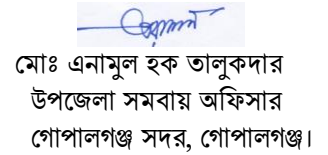 মোঃ এনামুল হক তালুকদার
উপজেলা সমবায় অফিসার
গোপালগঞ্জ সদর, গোপালগঞ্জ।